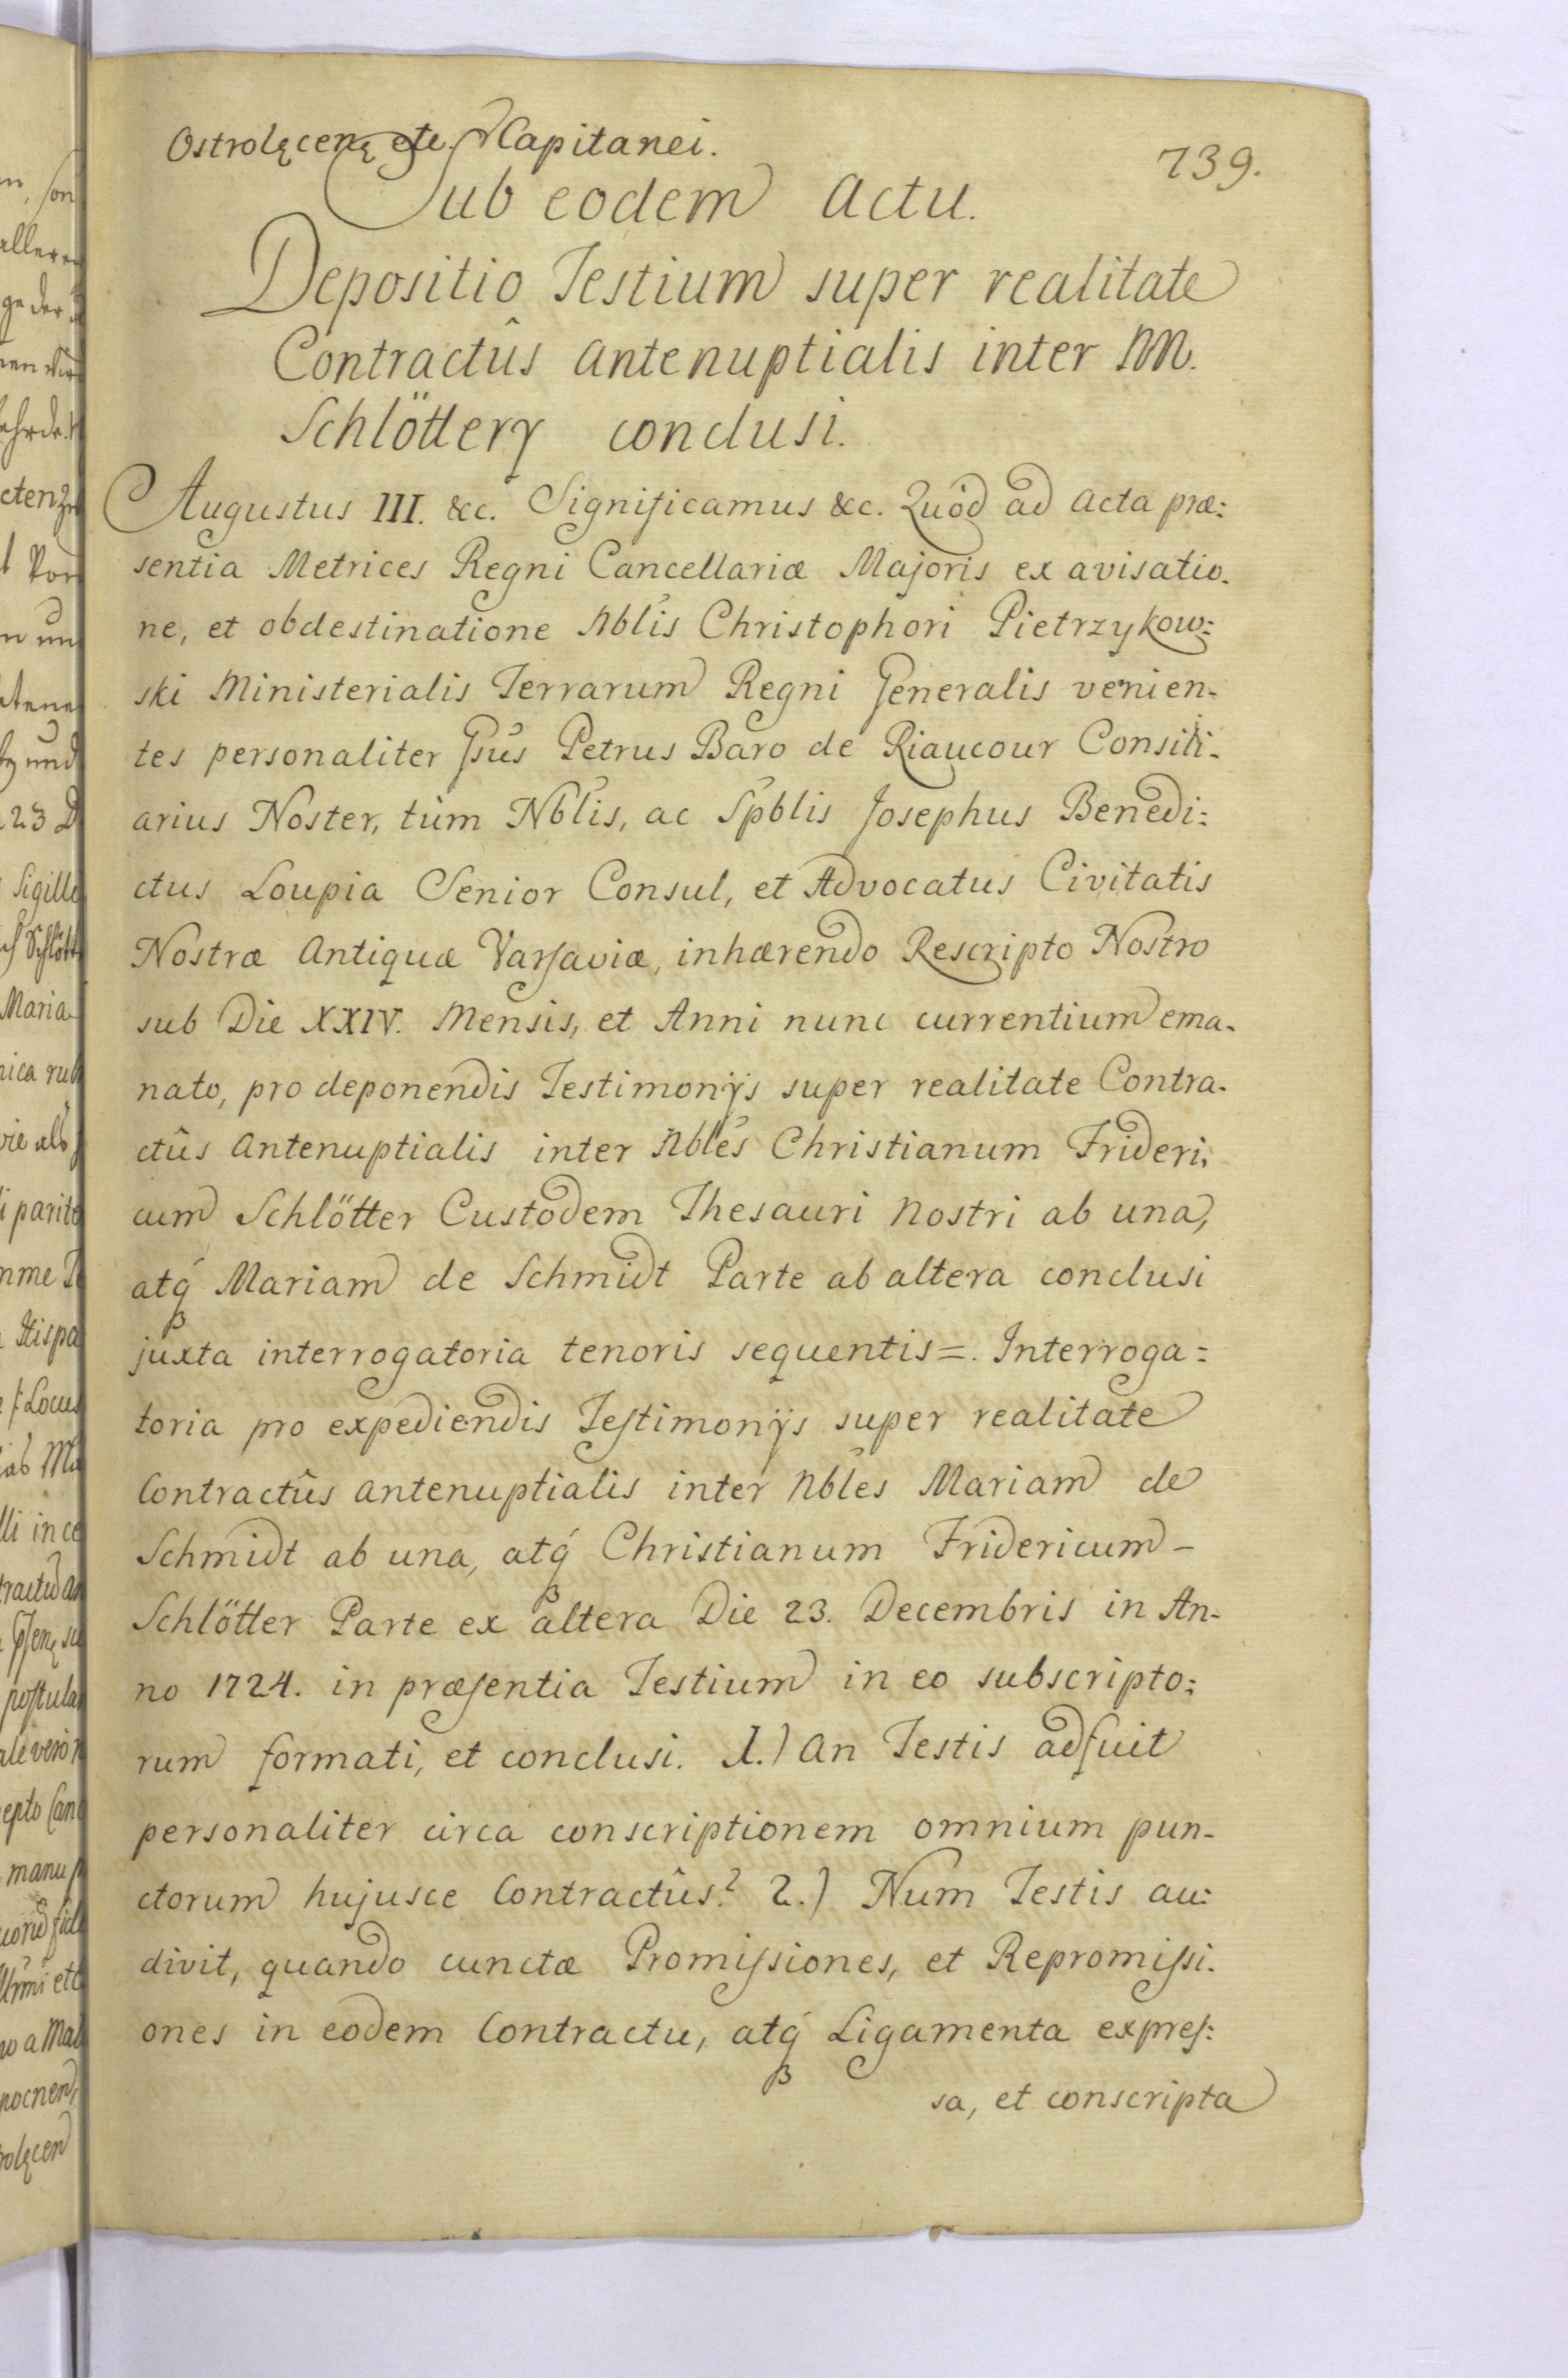 Ostrolęcenę etc. Capitanei.
739.
Sub eodem Actu.
Depositio Testium super realitate
Contractûs antenuptialis inter NN.
Schlötterÿ conclusi.
Augustus III. &c. Significamus &c. Quòd ad Acta præ:
sentia Metrices Regni Cancellariæ Majoris ex avisatio-
ne, et obdestinatione Nblis Christophori Pietrzykow:
ski Ministerialis Terrarum Regni Generalis venien-
tes personaliter Gsus Petrus Baro de Riaucour Consili-
arius Noster, tùm Nblis, ac Spblis Josephus Benedi:
ctus Loupia Senior Consul, et Advocatus Civitatis
Nostræ Antiquæ Varsaviæ, inhærendo Rescripto Nostro
sub Die XXIV. Mensis, et Anni nunc currentium ema-
nato, pro deponendis Testimonÿs super realitate Contra-
ctûs Antenuptialis inter Nbles Christianum Frideri-
cum Schlötter Custodem Thesauri Nostri ab una,
atq́ Mariam de Schmidt Parte ab altera conclusi
juxta interrogatoria tenoris sequentis=. Interroga=
toria pro expediendis Testimonÿs super realitate
Contractûs antenuptialis inter Nbles Mariam de
Schmidt ab una, atq́ Christianum Fridericum –
Schlötter Parte ex altera Die 23. Decembris in An-
no 1724. in præsentia Testium in eo subscripto:
rum formati, et conclusi. 1.) An Testis adfuit
personaliter circa conscriptionem omnium pun-
ctorum hujusce Contractûs? 2.) Num Testis au:
divit, quando cunctæ Promissiones, et Repromissi-
ones in eodem Contractu, atq́ Ligamenta expres:
sa, et conscripta